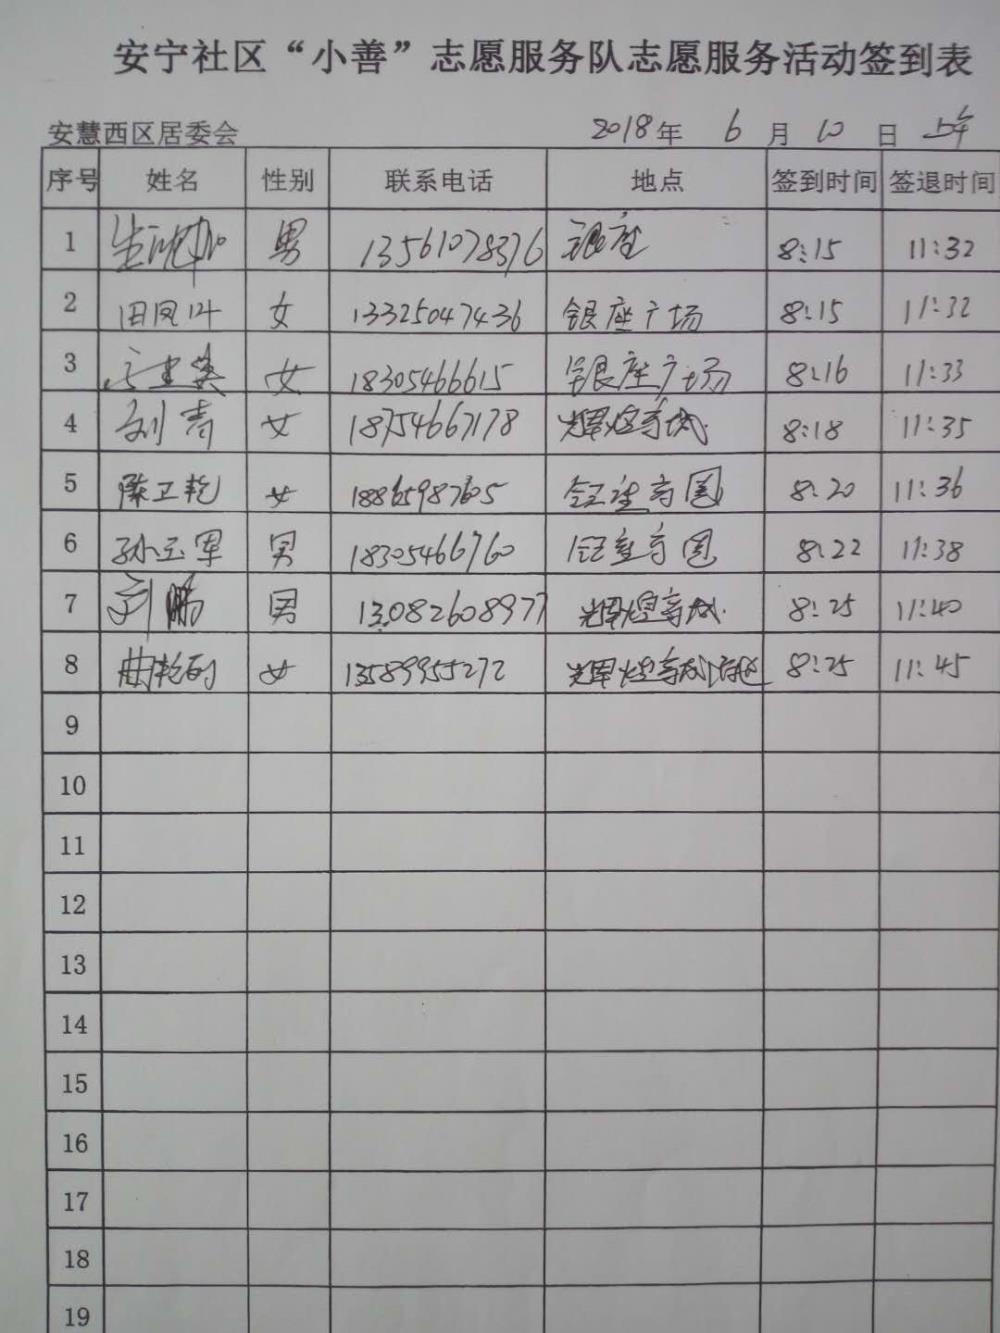 安宁社区“小善”志愿服务队志愿服务活动签到表
安慧西区居委会 2018年 6 月 10 日 上午
序号 姓名 性别 联系电话 地点 签到时间 签退时间
1 男 13561078376 银座 8:15 11:32
2 田凤叶 女 13325047436 银座广场 8:15 11:32
3 女 18305466615 银座广场 8:16 11:33
4 刘青 女 18754667178 辉煌奇城 8:18 11:35
5 陈卫乾 女 18865987605 8:20 11:36
6 孙玉军 男 18305466760 8:22 11:38
7 刘鹏 男 13082608977 辉煌奇城 8:25 11:40
8 女 13589955272 辉煌奇城 8:25 11:45
9
10
11
12
13
14
15
16
17
18
19